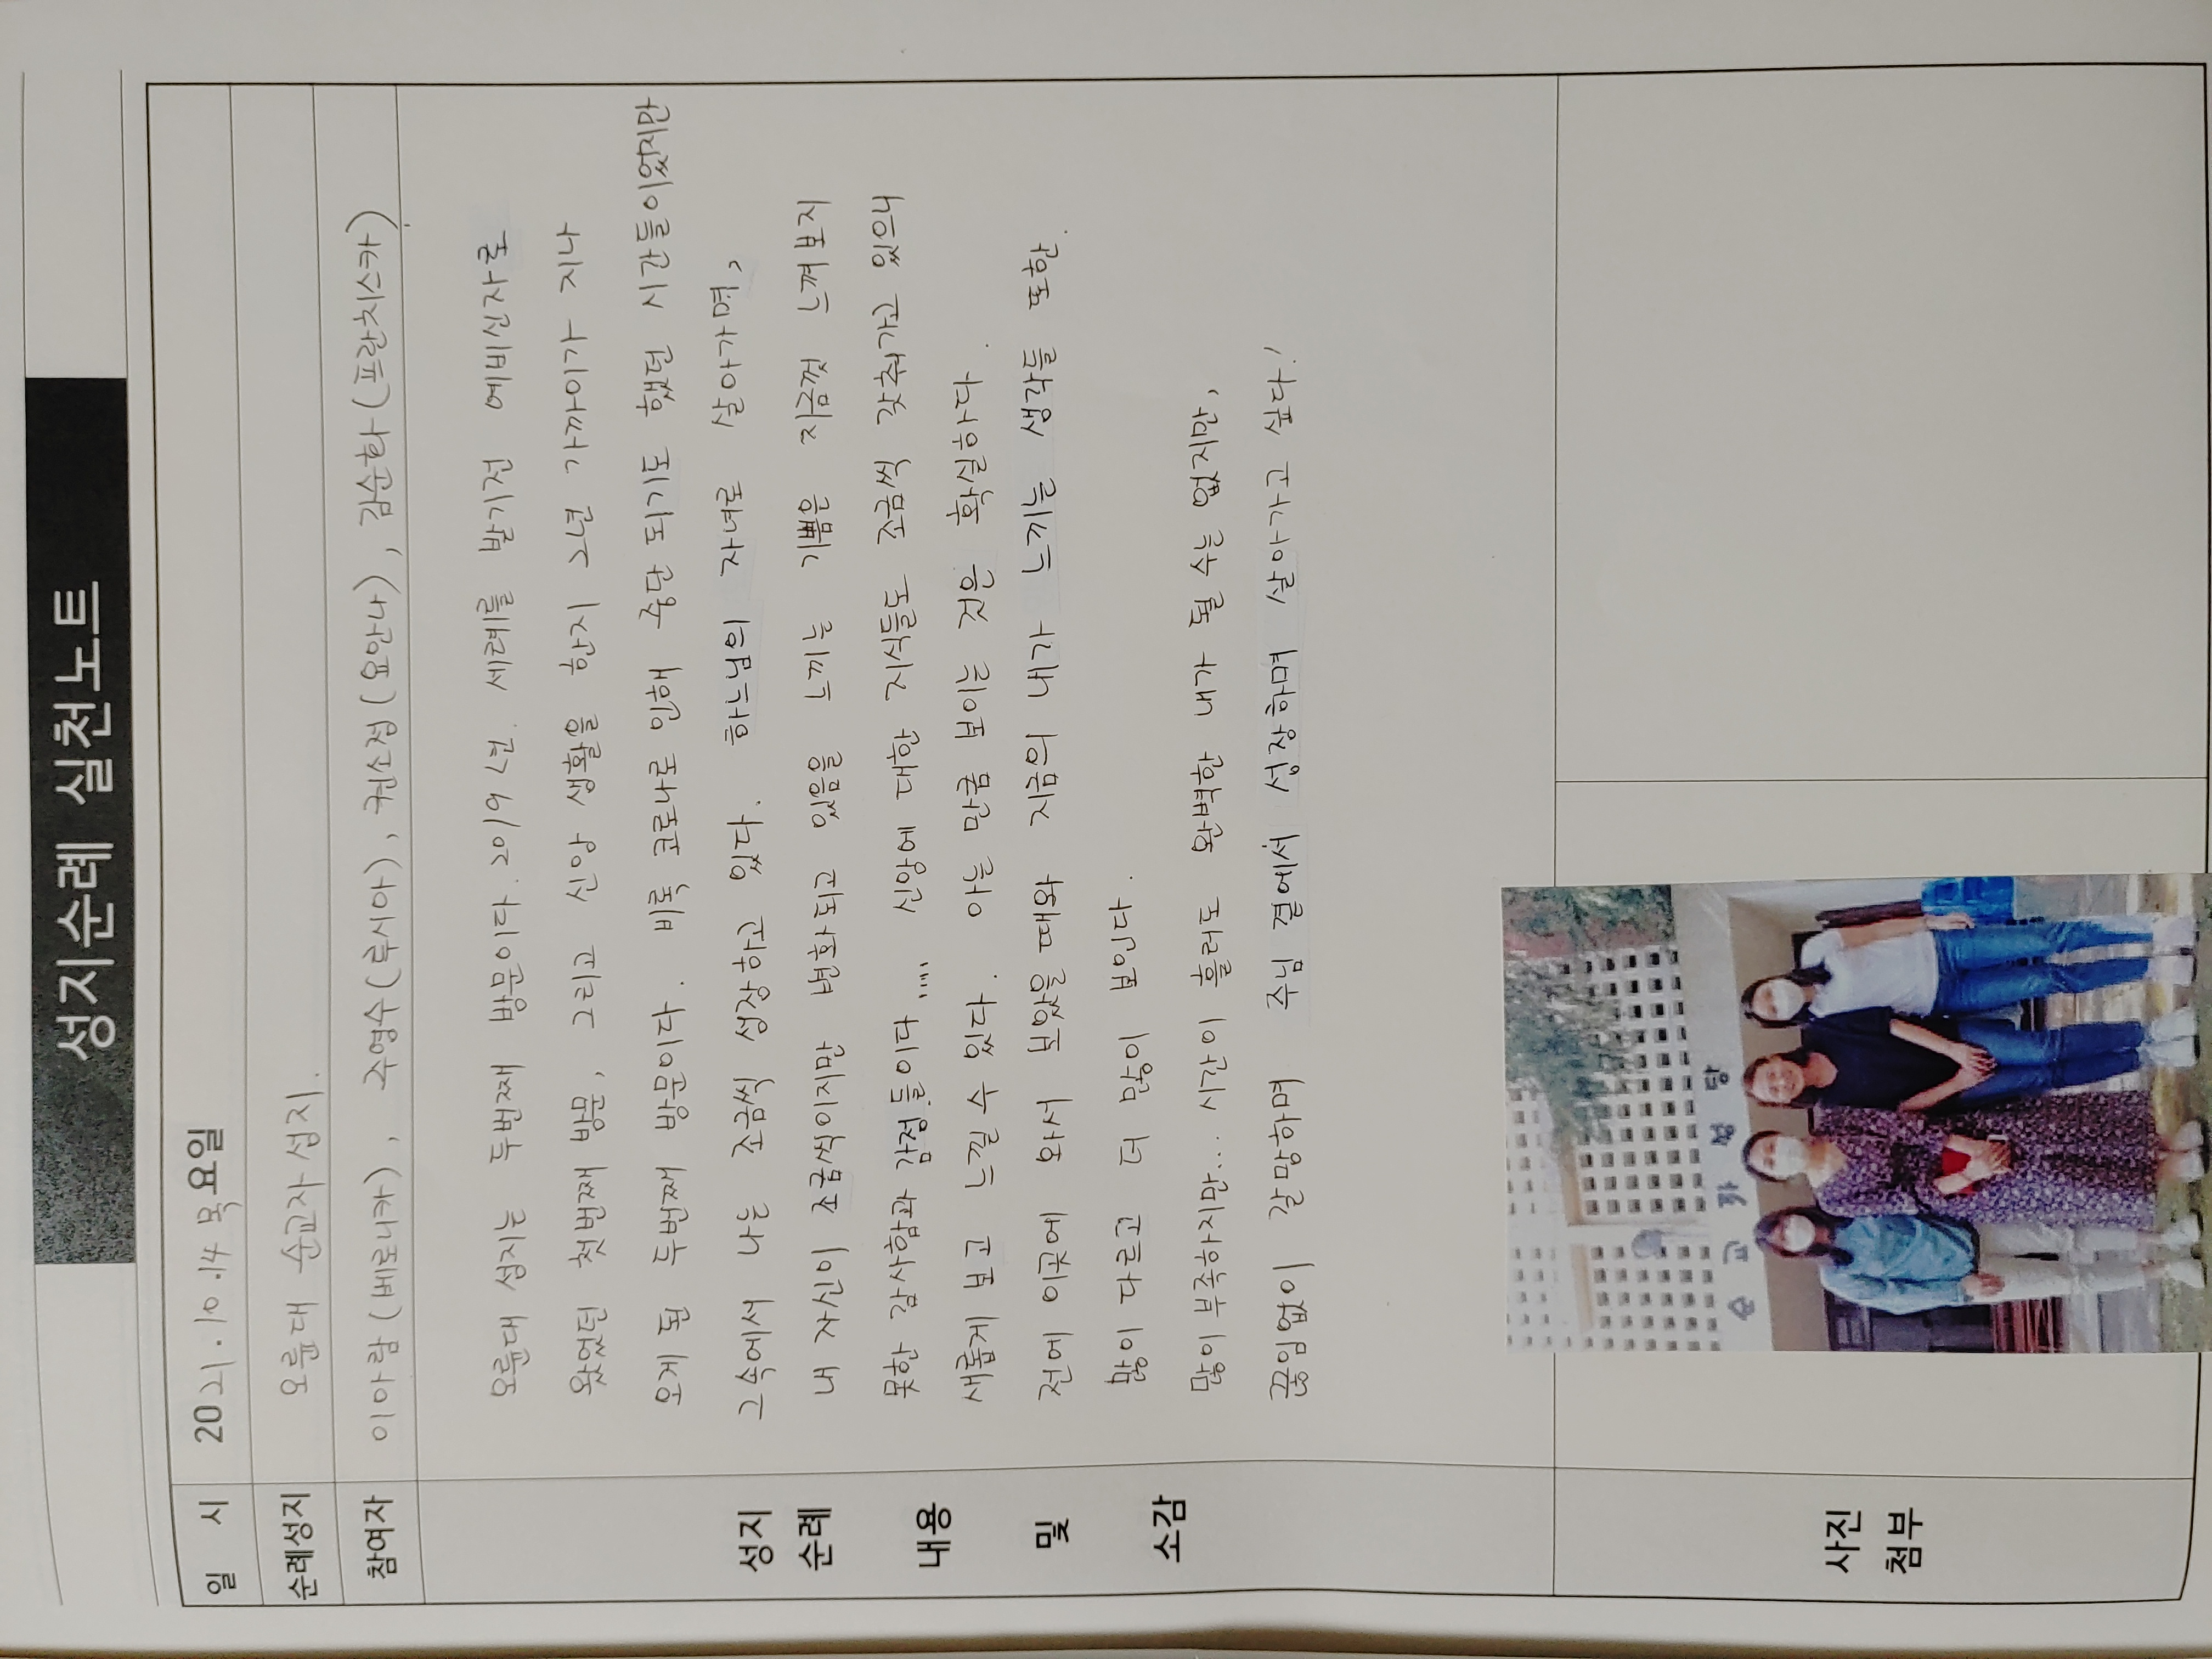 성지순례 실천노트
일 시 2021.10.14 목요일
순례성지 오륜대 순교자 성지.
참여자 이아람(베로니카), 주영수(루시아), 권소정(요안나), 김순화(프란치스카)
오륜대 성지는 두번째 방문이다. 2019년. 세례를 받기전 예비신자로
왔었던 첫번째 방문, 그리고 신앙 생활을 한지 2년 가까이가 지나
오게 된 두번째 방문이다. 비록 코로나로 인해 중단 되기도 했던 시간들이었지만
그속에서 나는 조금씩 성장하고 있다. 하느님의 자녀로 살아가며,
내 자신이 조금씩이지만 변화되고 있음을 느끼는 기쁨은 지금껏 느껴보지
못한 감사함과 감정들이다..... 신앙에 대한 지식들도 조금씩 갖춰가고 있으니
새롭게 보고 느낄 수 있다. 아는 만큼 보이는 것은 확실하다.
전에 이곳에 와서 보았을 때와 지금의 내가 느끼는 생각들 또한.
많이 다르고 더 많이 보인다.
많이 부족하지만... 시간이 흘러도 완벽한 내가 될 수는 없지만,
끊임없이 갈망하며 주님 곁에서 성장하며 살아가고 싶다!
성지
순례
내용
및
소감
순교자성당
사진
첨부